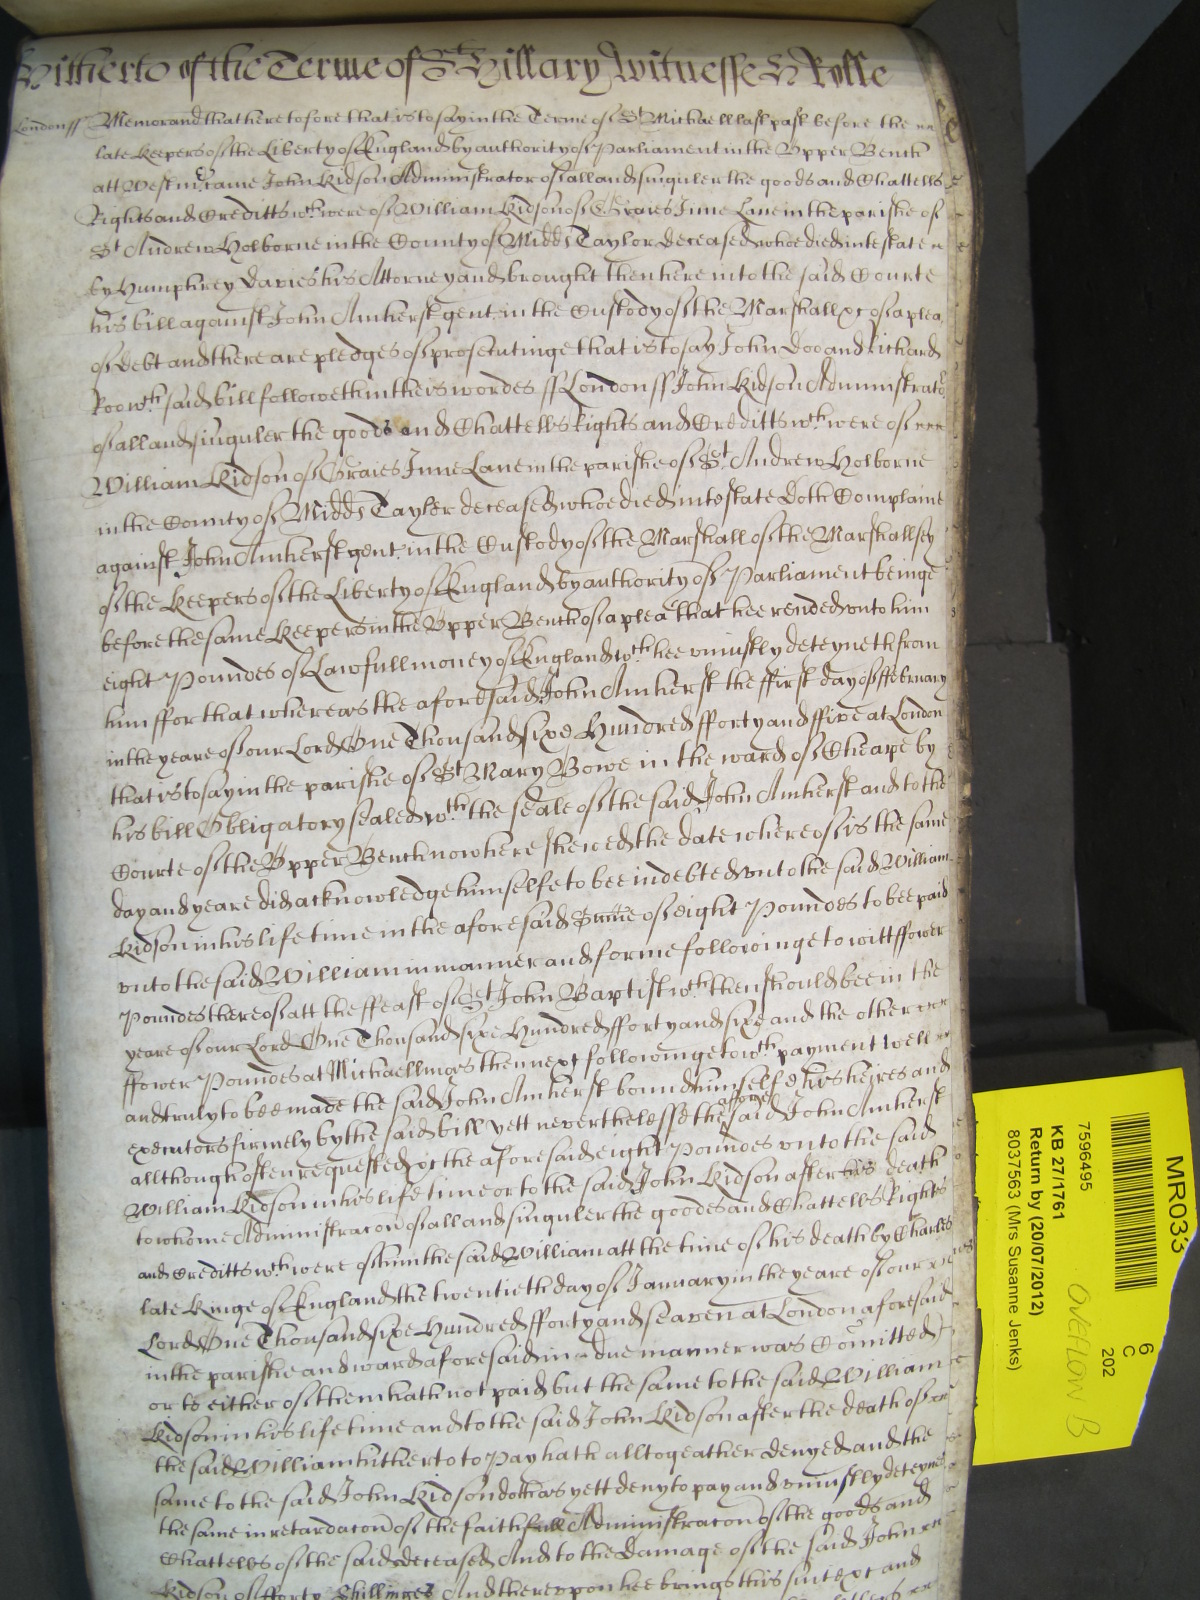 Hitherto of the Terme of St Hillary Witnesse H Rolle
London ss Memorand that heretofore that is to say in the Terme of St Michaell last past before the
late Keepers of the Liberty of England by authority of Parliament in the Upper Bench
att Westmr came John Kidson Administrator of all and singuler the goods and Chattells
Rights and Creditts wch were of William Kidson of Graies Inne Lane in the parishe of
St Andrew Holborne in the County of Midds Taylor deceased whoe died intestate
by Humphrey Davies his Attorney and brought then here into the said Courte
his bill against John Amherst gent in the Custody of the Marshall &c of a plea
of debt and there are pledges of prosecutinge that is to say John Doo and Richard
Roo wch said bill followeth in theis wordes ss London ss John Kidson Administrator
of all and singuler the goods and Chattells Rights and Creditts wch were of
William Kidson of Graies Inne Lane in the parishe of St Andrew Holborne
in the County of Midds Taylor deceased whoe died intestate doth Complaine
against John Amherst gent in the Custody of the Marshall of the Marshallsey
of the Keepers of the Liberty of England by authority of Parliament beinge
before the same Keepers in the Upper Bench of a plea that hee render unto him
eight Poundes of Lawfull money of England wch hee uniustly deteyneth from
him ffor that whereas the aforesaid John Amherst the ffirst day of ffebruary
in the yeare of our Lord One Thousand sixe Hundred fforty and ffive at London
that is to say in the parishe of St Mary Bowe in the ward of Cheape by
his bill Obligatory sealed wth the seale of the said John Amherst and to the
Courte of the Upper Bench now here shewed the date whereof is the same
day and yeare did acknowledge himselfe to bee indebted unto the said William
Kidson in his life time in the aforesaid Summe of eight Poundes to bee paid
unto the said William in manner and forme followinge to witt ffower
Poundes thereof att the ffeast of St John Baptist wch then should bee in the
yeare of our Lord One Thousand sixe Hundred fforty and sixe and the other
ffower Poundes at Michaellmas then next followinge to wch payment well
and truly to bee made the said John Amherst bound himself & his heires and
executors firmely by the said bill yett neverthelesse the afore said John Amherst
allthough often requested &c the aforesaid eight Poundes unto the said
William Kidson in his life time or to the said John Kidson after his death
to whome Administracon of all and singuler the goodes and Chattells Rights
and Creditts wch were of him the said William att the time of his death by Charles
late Kinge of England the twentieth day of January in the yeare of our
Lord One Thousand sixe Hundred fforty and seaven at London aforesaid
in the parishe and ward aforesaid in due manner was Comitted
or to either of them hath not paid but the same to the said William
Kidson in his life time and to the said John Kidson after the death of
the said William hitherto to Pay hath alltogeather denyed and the
same to the said John Kidson doth as yett deny to pay and uniustly deteynes
the same in retardacon of the faithfull Administracon of the goods and
Chattells of the said deceased And to the damage of the said John
Kidson of fforty Shillinges And thereupon hee brings this suit &c and
MR033
6
C
202
7596495
KB 27/1761
Return by (20/07/2012)
8037563 (Mrs Susanne Jenks)
OVERFLOW B